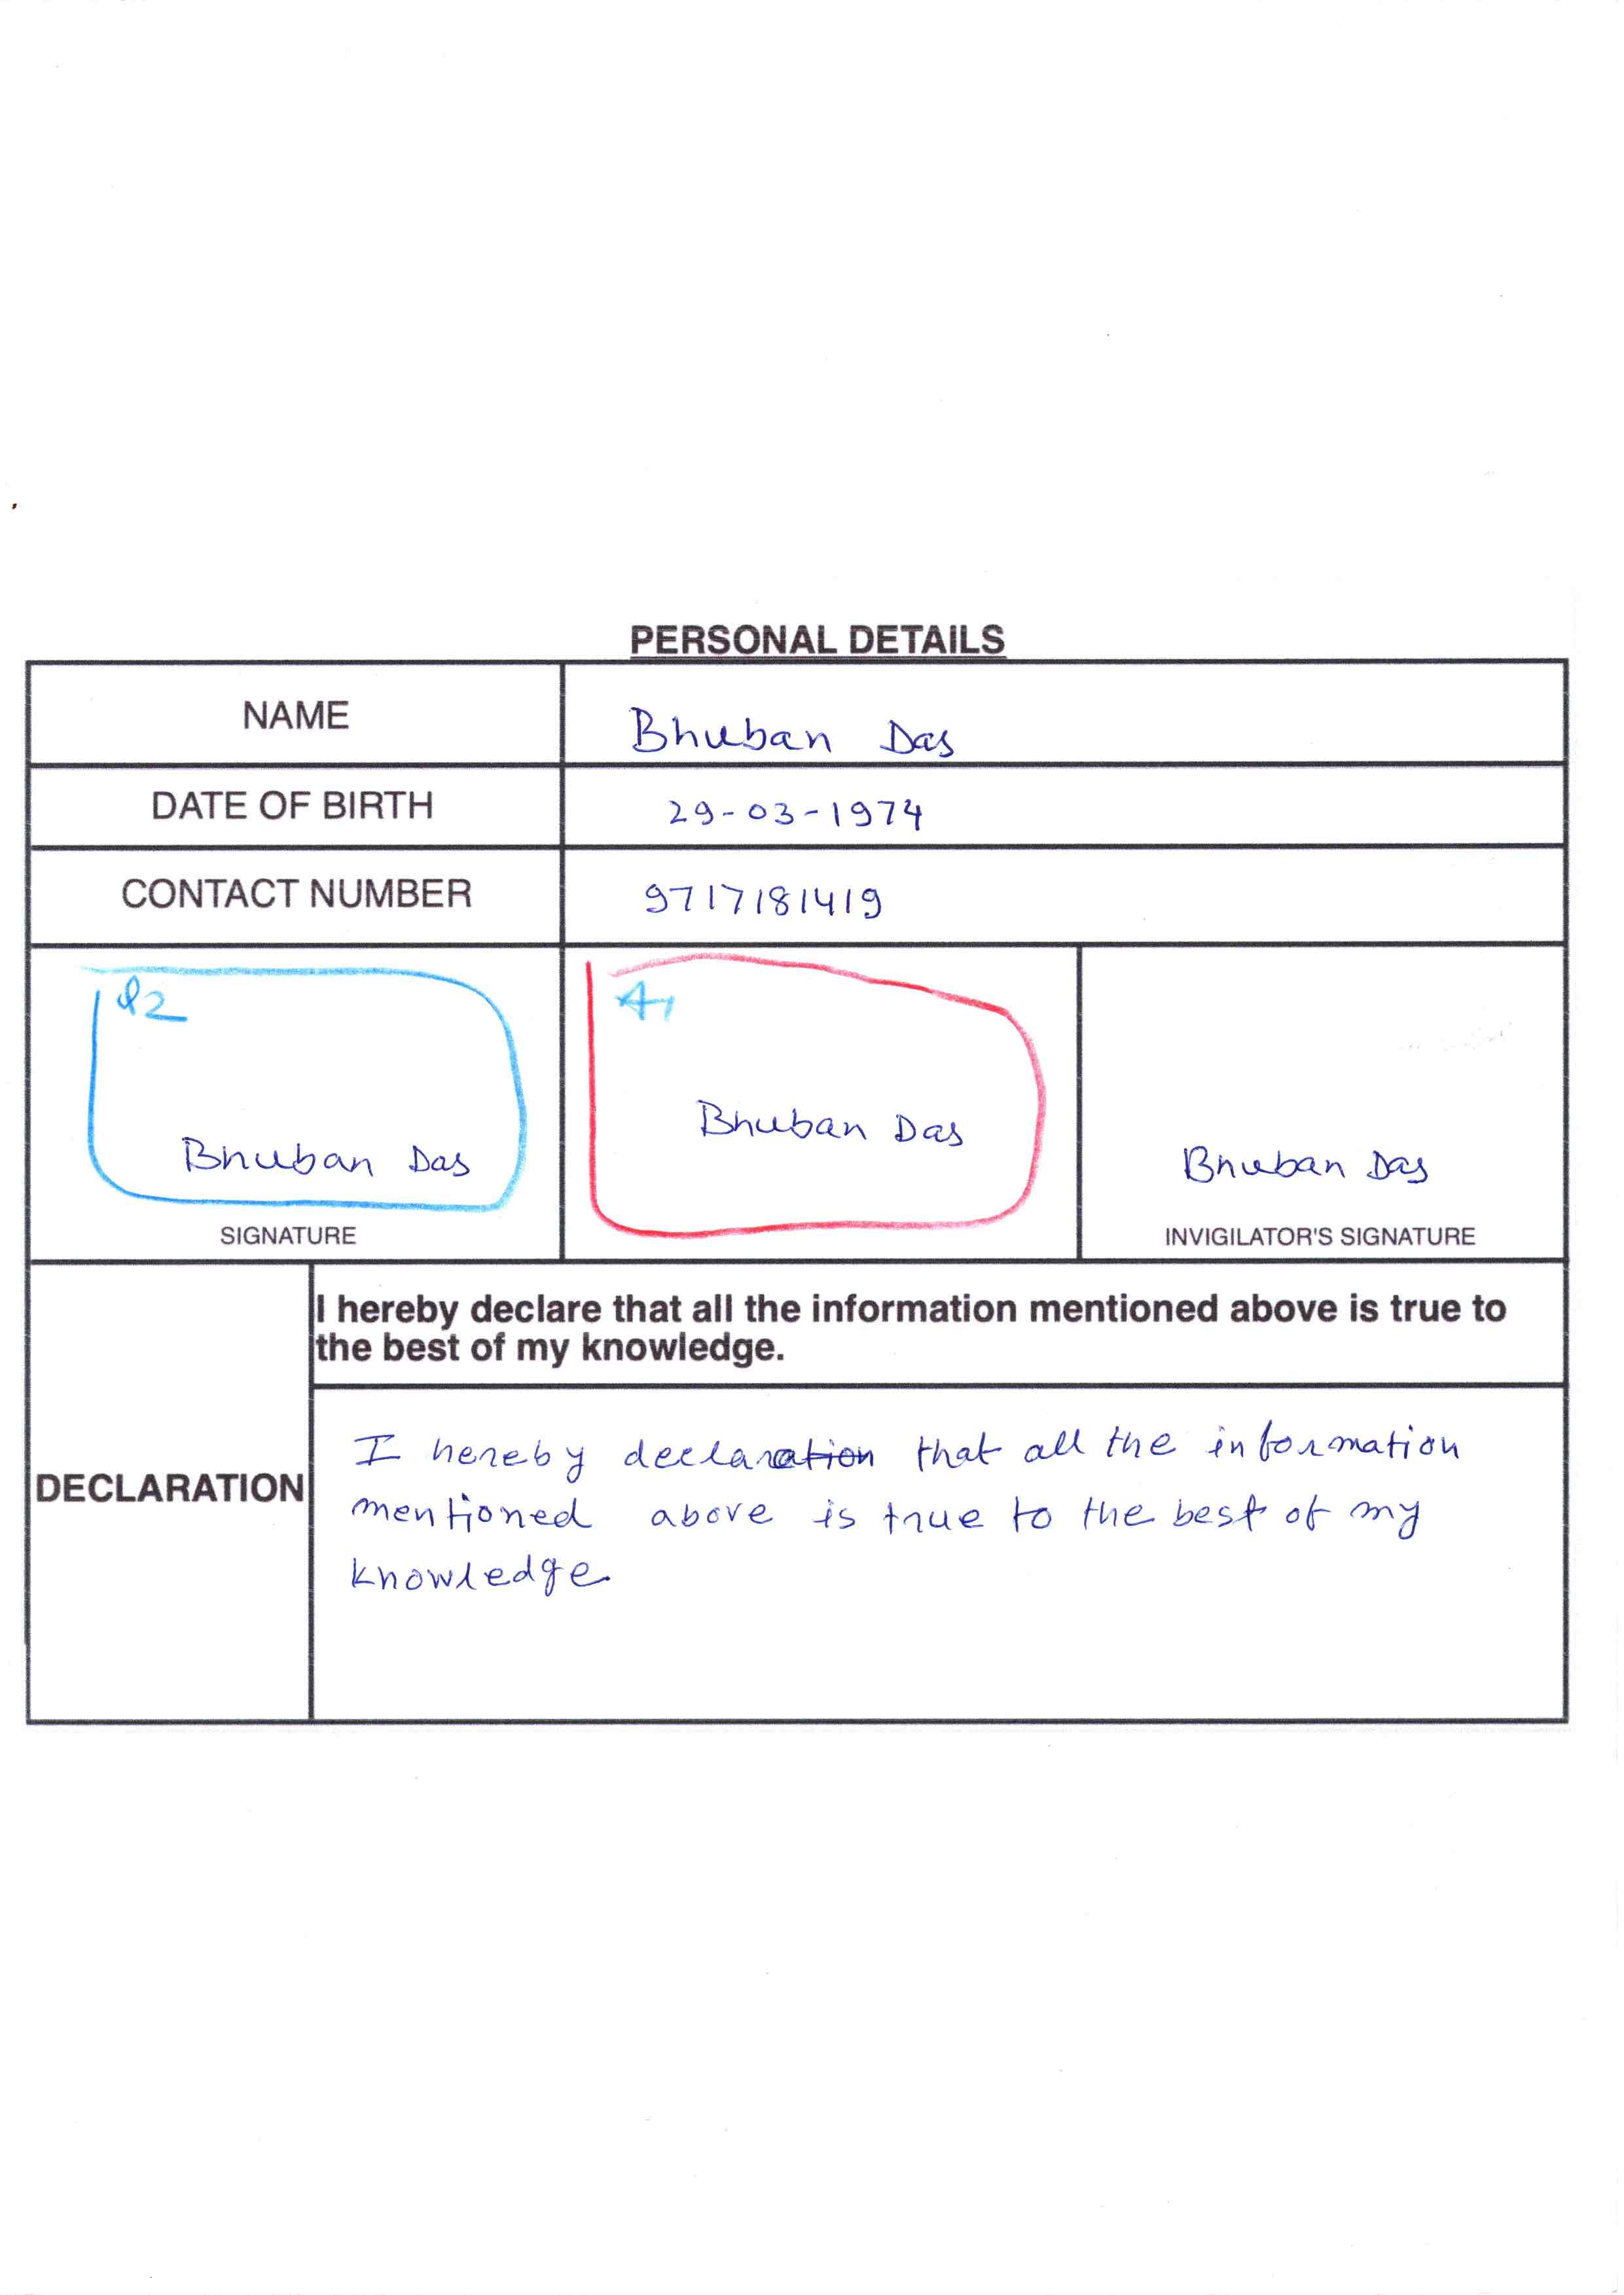 PERSONAL DETAILS
NAME Bhuban Das
DATE OF BIRTH 29-03-1974
CONTACT NUMBER 9717181419
Q2 A1
Bhuban Das Bhuban Das Bhuban Das
SIGNATURE INVIGILATOR'S SIGNATURE
I hereby declare that all the information mentioned above is true to
the best of my knowledge.
DECLARATION
I hereby declaration that all the information
mentioned above is true to the best of my
knowledge